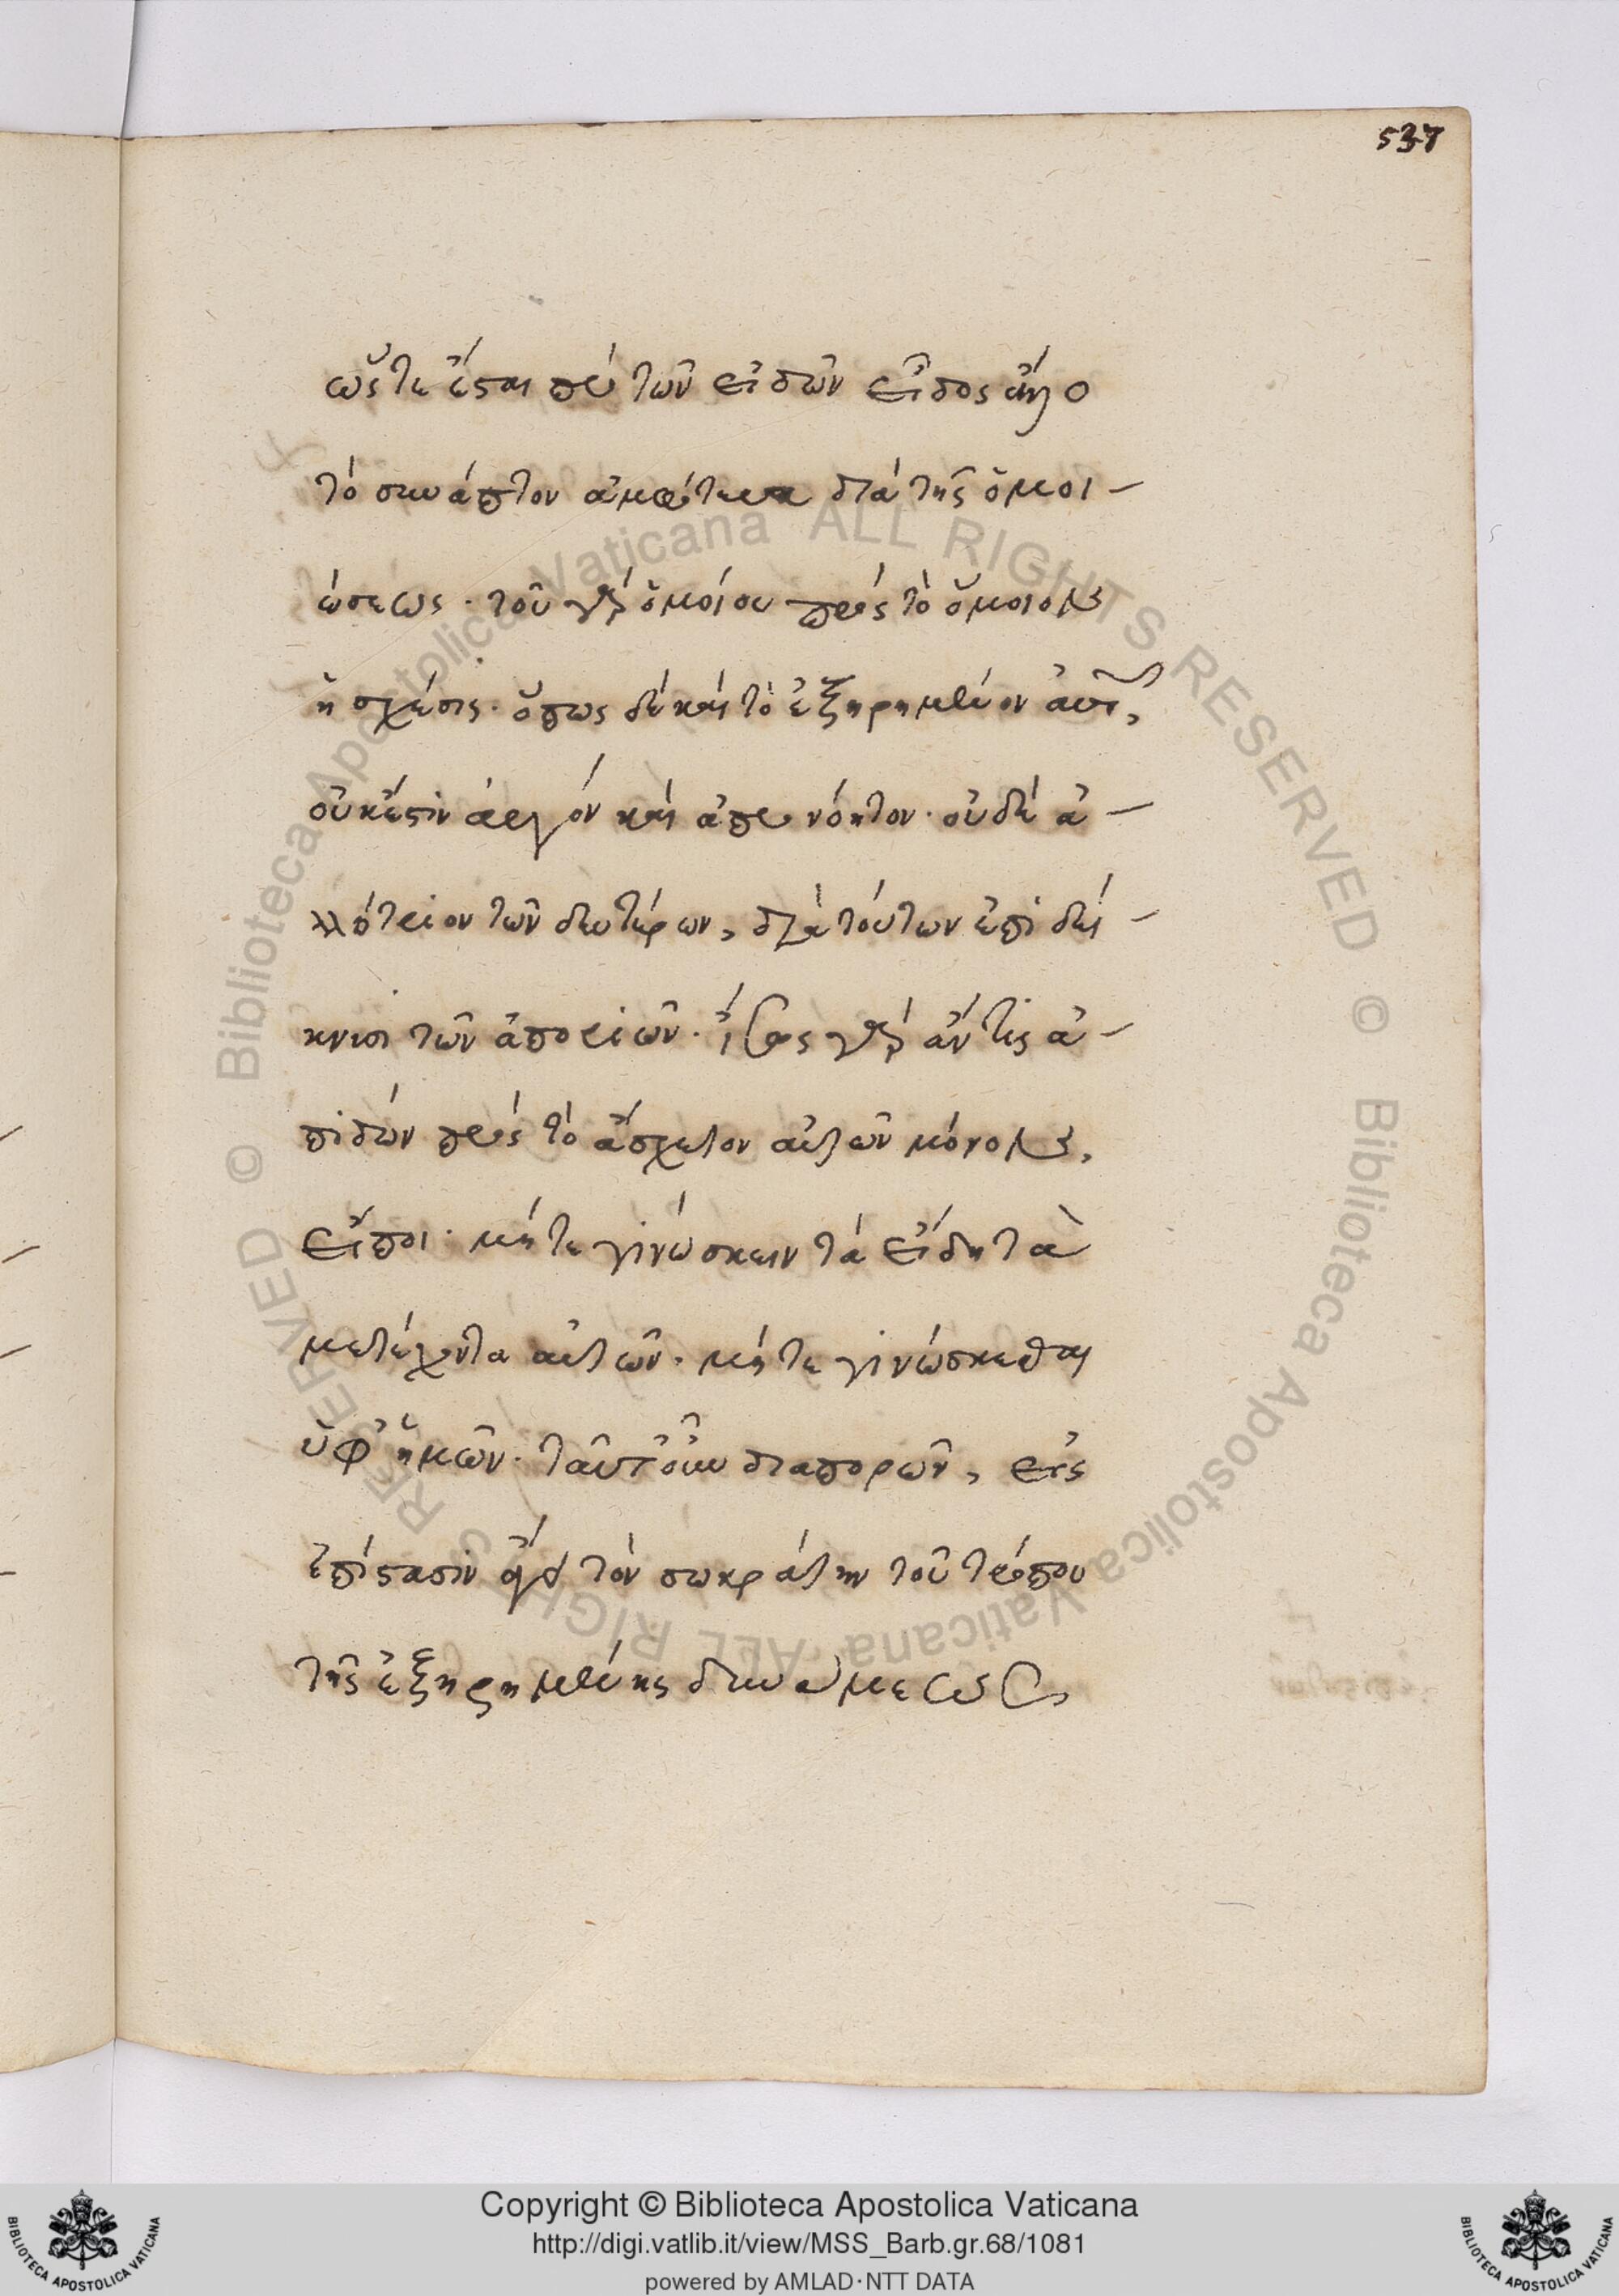 537
ὥστε ἔσται πρὸ τῶν εἰδῶν εἶδος ἄλλο
τὸ συνάπτον ἀμφότερα διὰ τῆς ὁμοι-
ώσεως· τοῦ γὰρ ὁμοίου πρὸς τὸ ὅμοιον
ἡ σχέσις. ὅπως δὲ καὶ τὸ ἐξηρημένον αὐτῶν,
οὐκ ἔστιν ἀργὸν καὶ ἀπρονόητον· οὐδὲ ἀ-
λλότριον τῶν δευτέρων, διὰ τούτων ἐπιδεί-
κνυσι τῶν ἀποριῶν. ἴσως γὰρ ἄν τις ἀ-
πιδὼν πρὸς τὸ ἄσχετον αὐτῶν μόνον,
εἴποι· μήτε γινώσκειν τὰ εἴδη τὰ
μετέχοντα αὐτῶν. μήτε γινώσκεσθαι
ὑφ' ἡμῶν. ταῦτ' οὖν διαπορῶν, εἰς
ἐπίστασιν ἄγει τὸν σωκράτην τοῦ τρόπου
τῆς ἐξηρημένης δυνάμεως
Copyright © Biblioteca Apostolica Vaticana
http://digi.vatlib.it/view/MSS_Barb.gr.68/1081
powered by AMLAD·NTT DATA
BIBLIOTECA APOSTOLICA VATICANA
BIBLIOTECA APOSTOLICA VATICANA
© Biblioteca Apostolica Vaticana ALL RIGHTS RESERVED
© Biblioteca Apostolica Vaticana ALL RIGHTS RESERVED